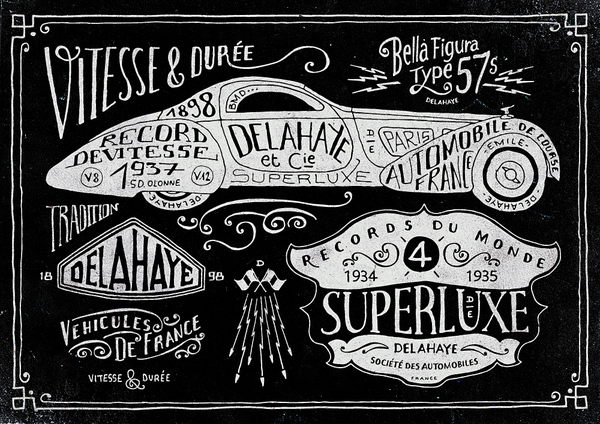 VITESSE & DURÉE
Bellà Figura
TYPE 57s
DELAHAYE
1898
BMD...
RECORD
DE VITESSE
1937
V8
V12
SD. OLONNE
DELAHAYE
DELAHAYE
et Cie
SUPERLUXE
DLE
PARIS
AUTOMOBILE DE COURSE
FRANCE
EMILE
DELAHAYE
TRADITION
18 DELAHAYE 98
D
VEHICULES
DE FRANCE
VITESSE & DURÉE
RECORDS DU MONDE
1934 4 1935
SUPERLUXE
DLE
DELAHAYE
SOCIÉTÉ DES AUTOMOBILES
FRANCE